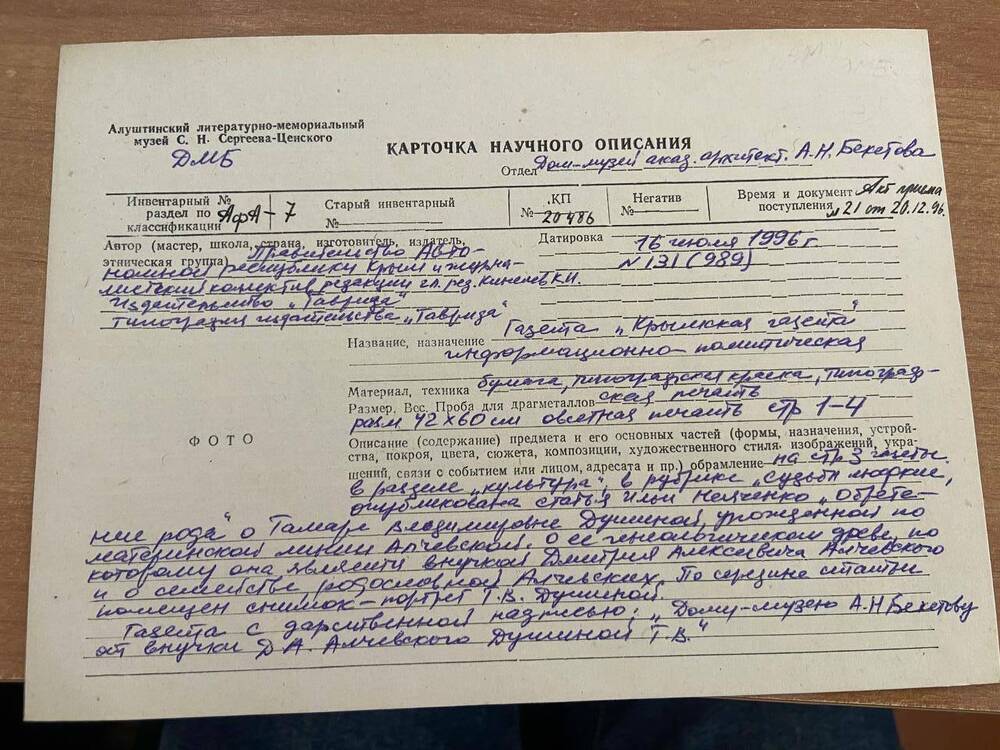 Алуштинский литературно-мемориальный
музей С. Н. Сергеева-Ценского
ДМБ
КАРТОЧКА НАУЧНОГО ОПИСАНИЯ
Отдел Дом-музей акад. архитект. А.Н. Бекетова
Инвентарный №
раздел по
классификации АфА-7
Старый инвентарный
№
КП
№ 20486
Негатив
№
Время и документ Акт приема
поступления №21 от 20.12.96.
Автор (мастер, школа, страна, изготовитель, издатель,
этническая группа) Правительство Авто-
номной республики Крым и журна-
листский коллектив редакции гл. рез. К.И.
Издательство „Таврида"
типография издательства „Таврида"
Датировка 16 июля 1996 г
№ 131 (989)
Название, назначение Газета „Крымская газета"
информационно-политическая
Материал, техника бумага, типографская краска, типограф-
ская печать
Размер. Вес. Проба для драгметаллов
разм 42×60 см офсетная печать стр 1-4
ФОТО
Описание (содержание) предмета и его основных частей (формы, назначения, устрой-
ства, покроя, цвета, сюжета, композиции, художественного стиля, изображений, укра-
шений, связи с событием или лицом, адресата и пр.) обрамление на стр 3 газеты
в разделе „культура", в рубрике „Судьбы людские,
опубликована статья Ильи „Обрете-
ние рода" о Тамаре Владимировне Душиной, урожденной по
материнской линии Алчевской. О ее генеологическом древе, по
которому она является внучкой Дмитрия Алексеевича Алчевского
и о семействе, родословной Алчевских. По середине статьи
помещен снимок-портрет Т.В. Душиной.
Газета с дарственной надписью: „Дому-музею А.Н Бекетову
от внучки Д. А. Алчевского Душиной Т.В."